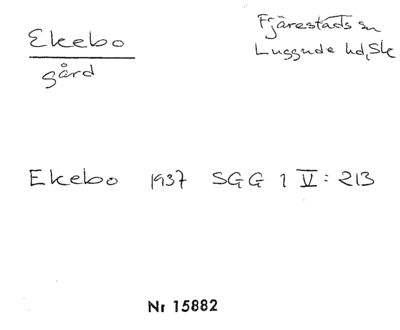 Ekebo
gård
Fjärestads sn
Luggude hd, Sk
Ekebo 1937 SGG 1 V: 213
Nr 15882